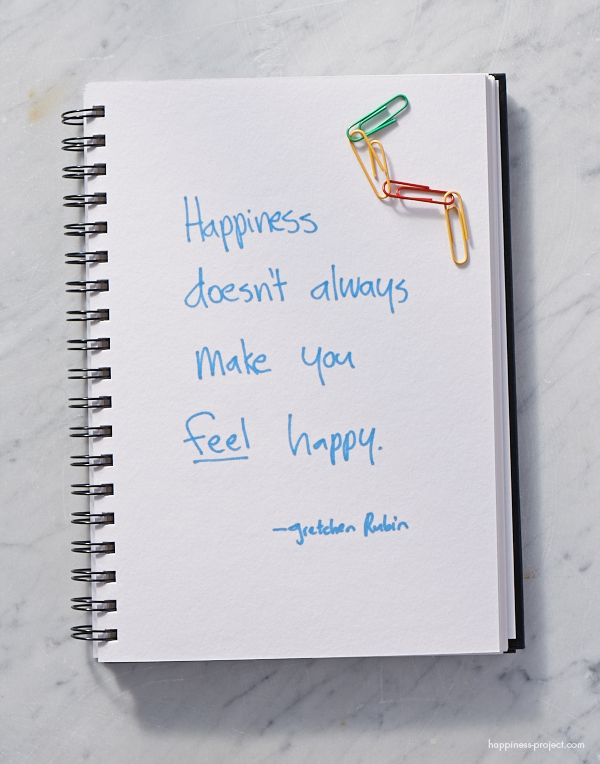 Happiness
doesn't always
make you
feel happy.
—gretchen Rubin
happiness-project.com